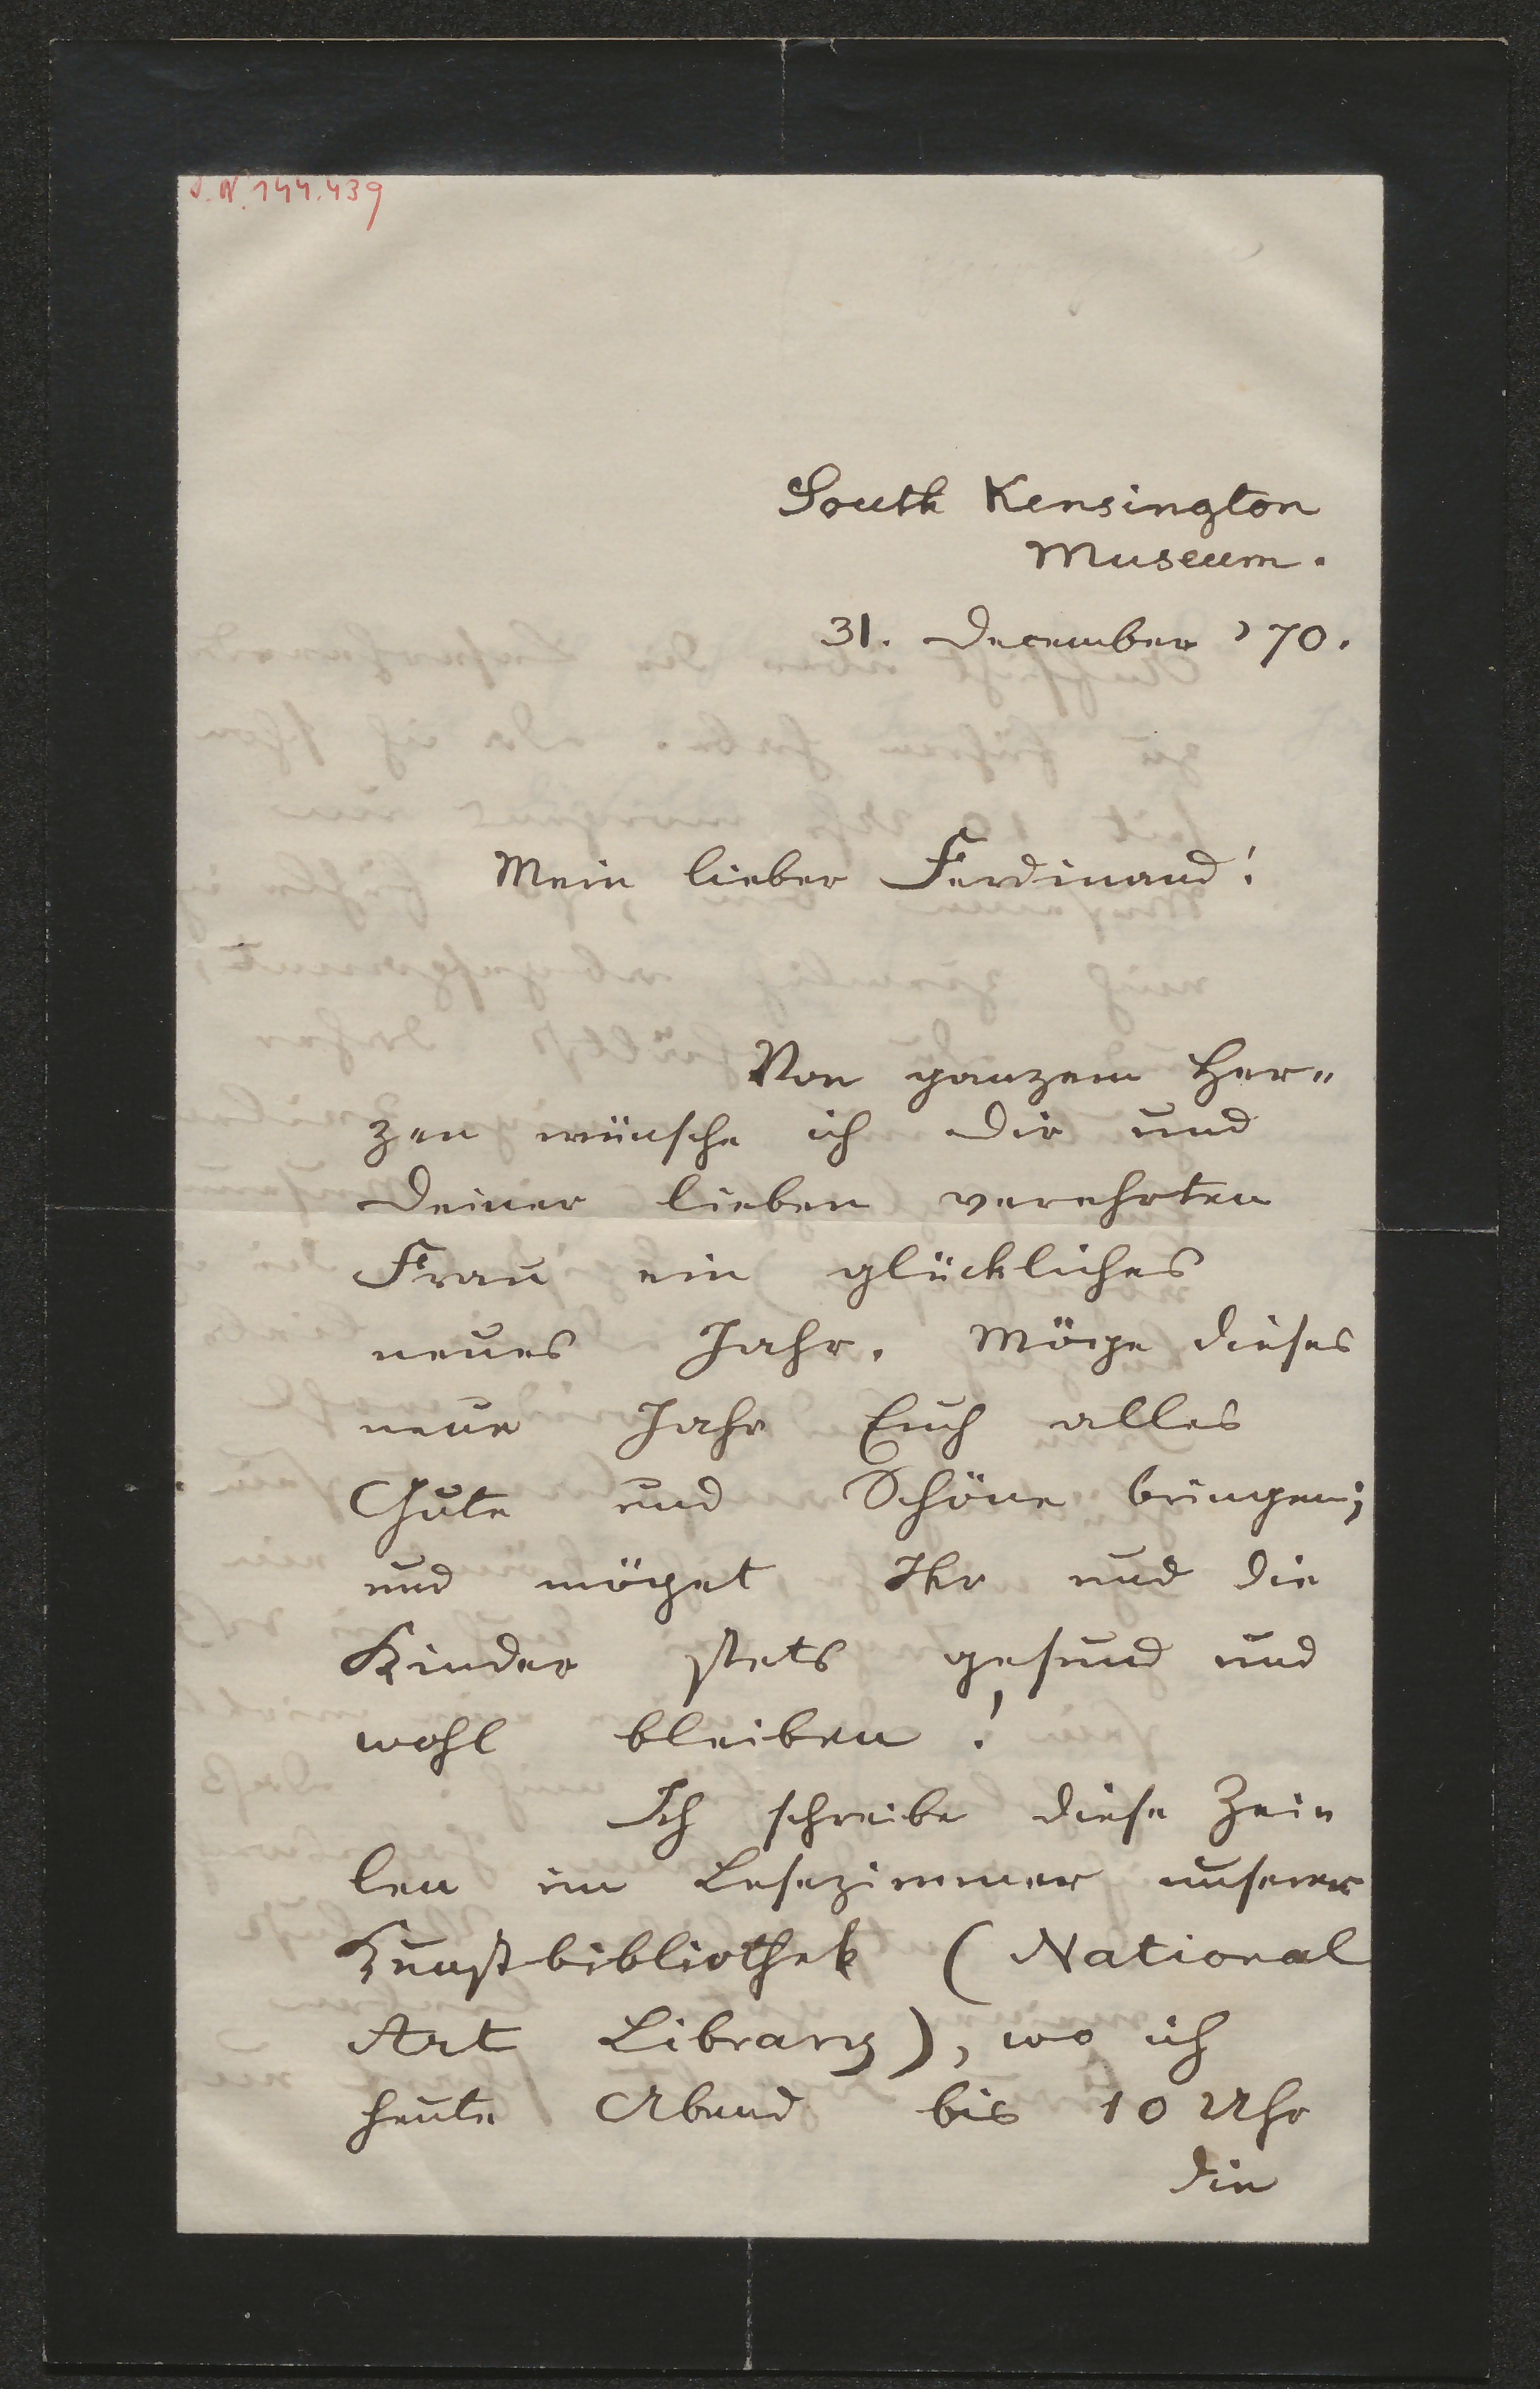 J. N. 144.439
South Kensington
Museum.
31. December '70.
Mein lieber Ferdinand!
Von ganzem Her„
zen wünsche ich Dir und
Deiner lieben verehrten
Frau ein glückliches
neues Jahr. Möge dieses
neue Jahr Euch alles
Gute und Schöne bringen;
und möget Ihr und die
Kinder stets gesund und
wohl bleiben!
Ich schreibe diese Zei„
len im Lesezimmer unserer
Kunstbibliothek (National
Art Library), wo ich
heute Abend bis 10 Uhr
die